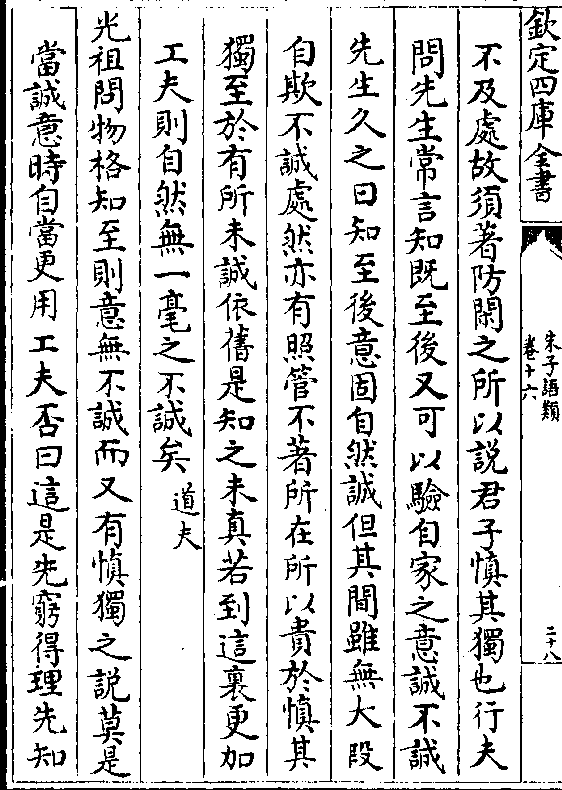 欽定四庫全書
朱子語類
卷十六
二十八
不及處故須著防閑之所以説君子慎其獨也行夫
問先生常言知既至後又可以驗自家之意誠不誠
先生久之曰知至後意固自然誠但其間雖無大段
自欺不誠處然亦有照管不著所在所以貴於慎其
獨至於有所未誠依舊是知之未真若到這裏更加
工夫則自然無一毫之不誠矣道夫
光祖問物格知至則意無不誠而又有慎獨之説莫是
當誠意時自當更用工夫否曰這是先窮得理先知